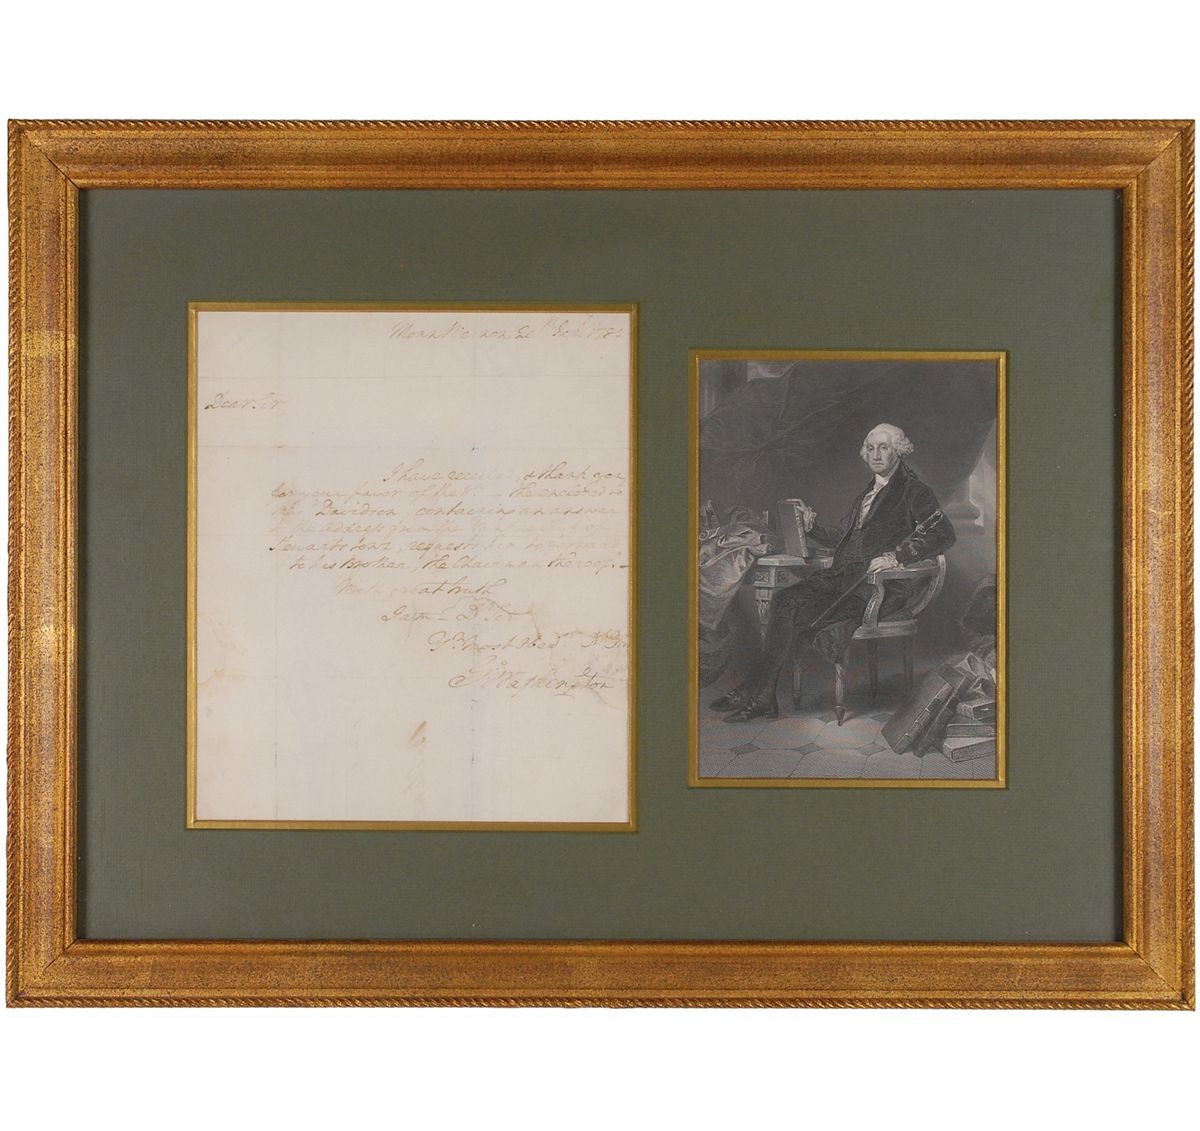 Mount Vernon 20th 1784
Dear Sir
I have received, & thank you
for your favor of the 8th — the enclosed to
Mr Davidson, containing an answer
to the address from the of
Stewarts town, requests him to forward
to his Brother, the Chairman thereof. —
With great truth
I am — Dr Sir
Yr Most Obedt
Go: Washington